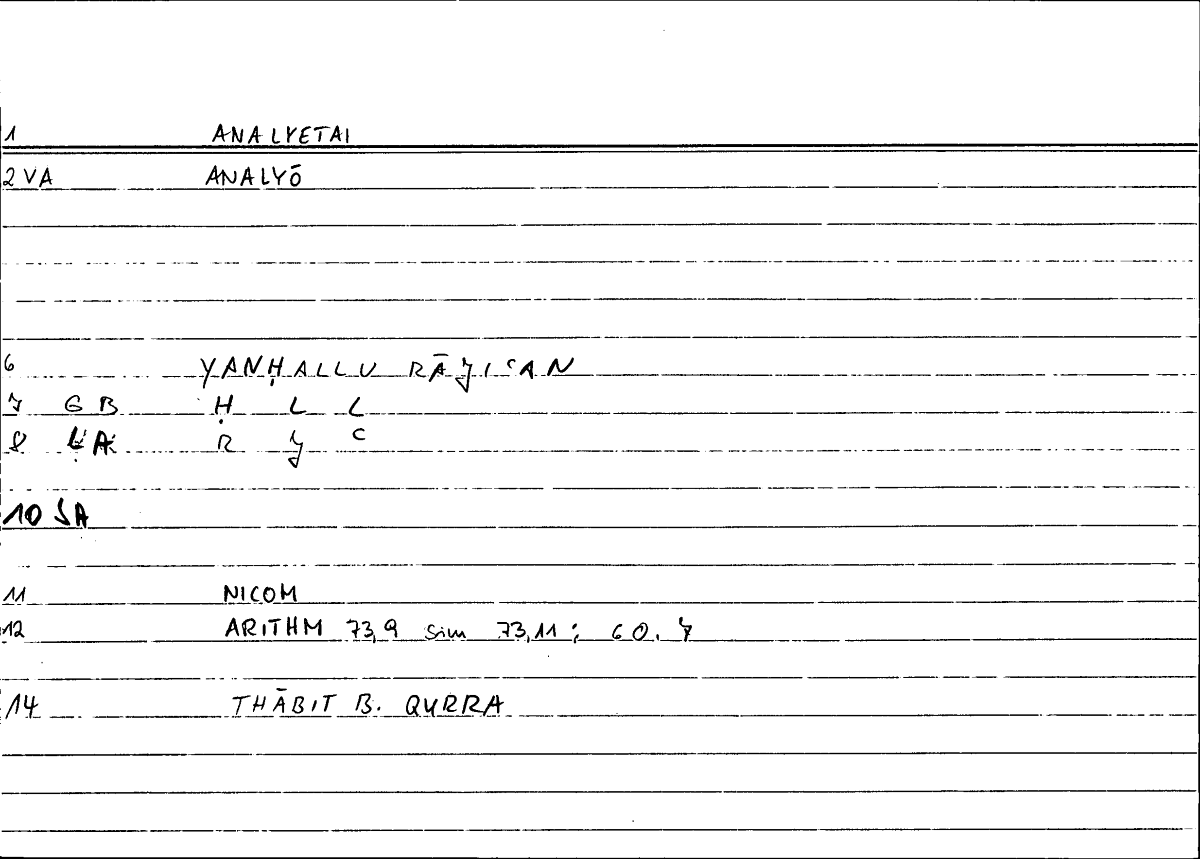 1 ANALYETAI
2 VA ANALYŌ
6 YANḤALLU RĀJIʿAN
7 GB Ḥ L L
8 R J ʿ
10 SA
11 NICOM
12 ARITHM 73,9 sim 73,11; 60.7
14 THĀBIT B. QURRA